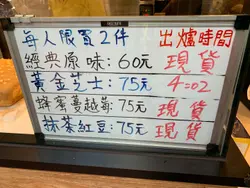 每人限買2件 出爐時間
經典原味:60元 現貨
黃金芝士:75元 4:02
蜂蜜蔓越莓:75元 現貨
抹茶紅豆:75元 現貨